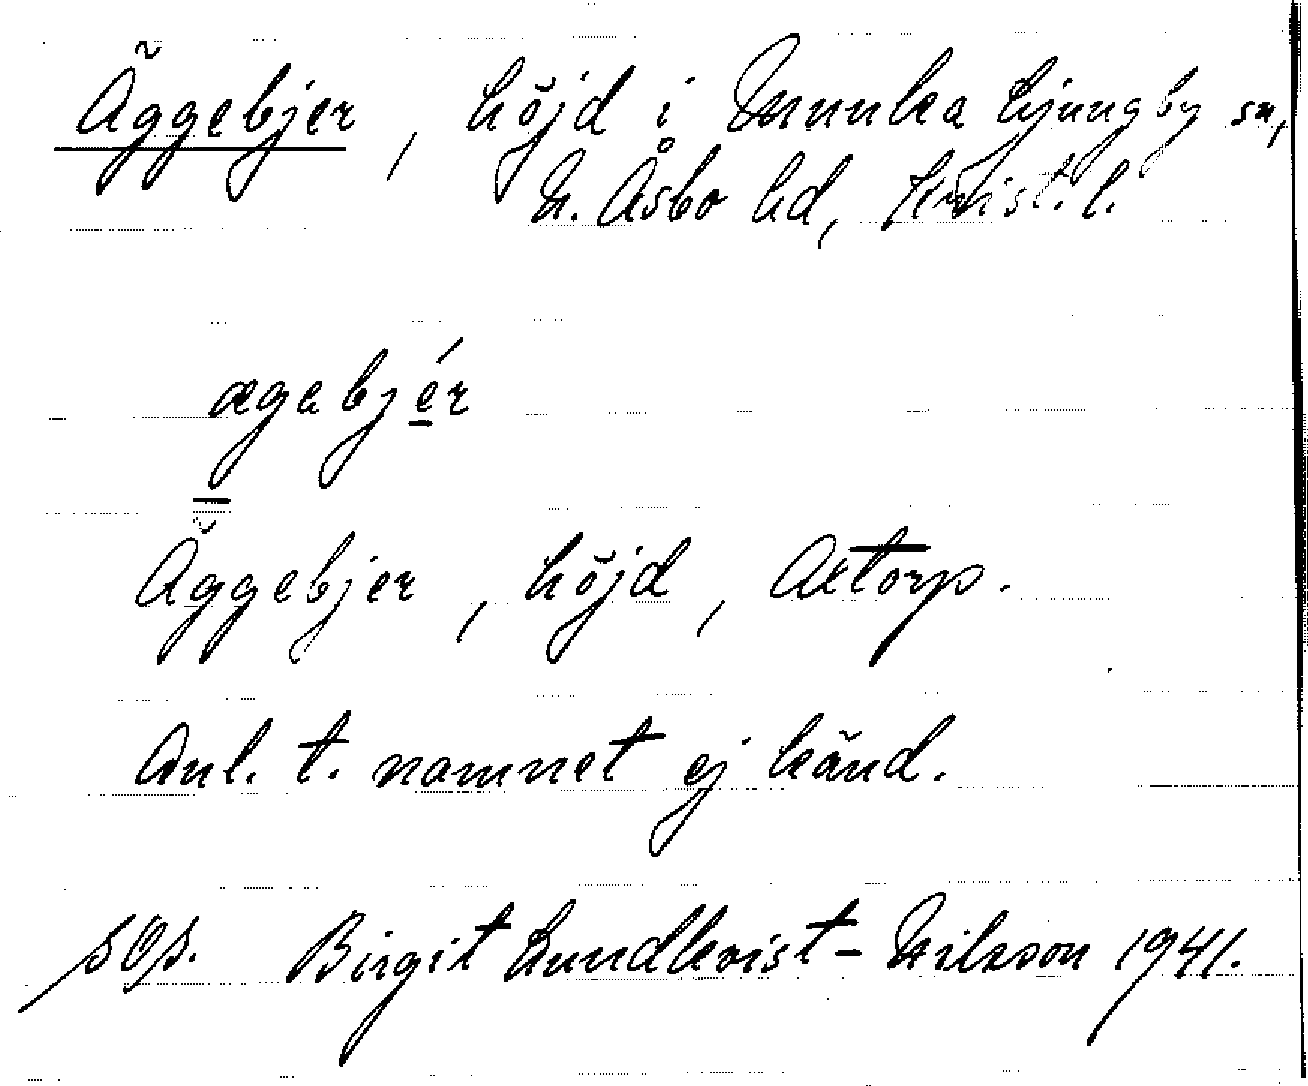 Äggebjer, höjd i Munka Ljungby sn,
N. Åsbo hd, Krist. l.
ægebjér
Äggebjer, höjd, Ættorp.
Anl. t. namnet ej känd.
Birgit Lundkvist-Nilsson 1941.